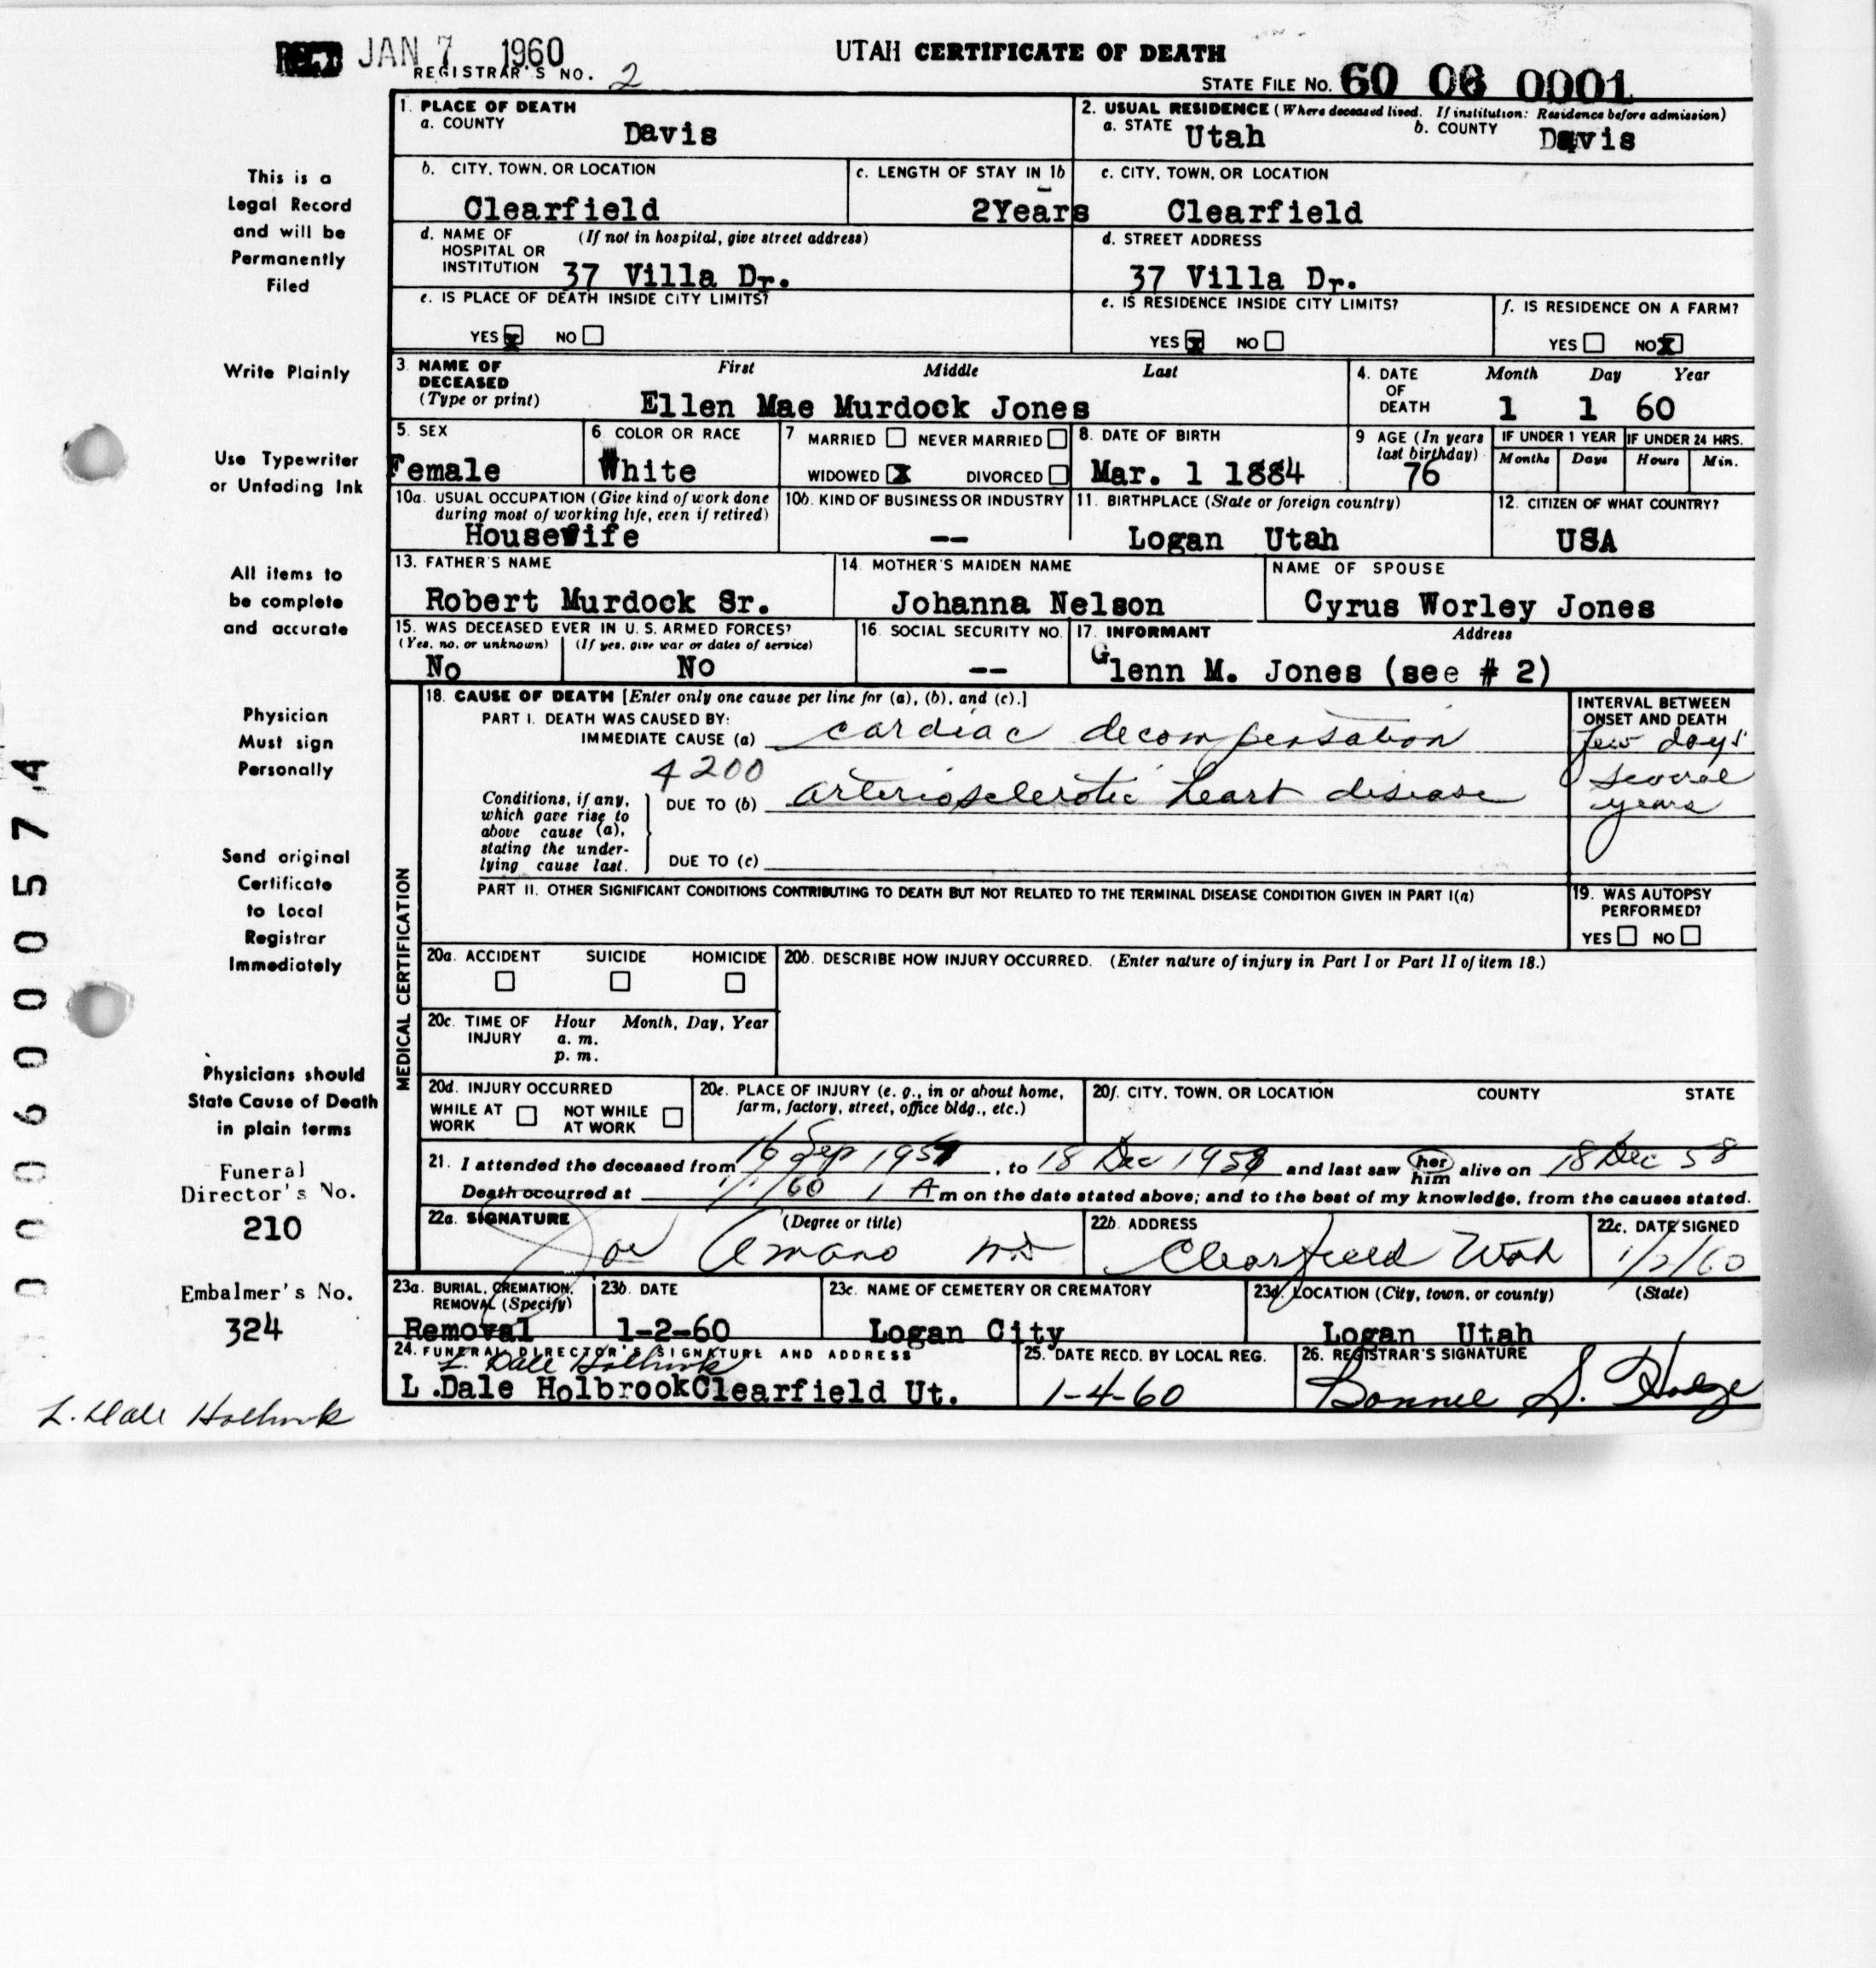 REC'D JAN 7 1960
UTAH CERTIFICATE OF DEATH
REGISTRAR'S NO. 2
STATE FILE NO. 60 06 0001
1. PLACE OF DEATH
a. COUNTY
Davis
2. USUAL RESIDENCE (Where deceased lived. If institution: Residence before admission)
a. STATE Utah b. COUNTY Davis
b. CITY, TOWN, OR LOCATION
Clearfield
c. LENGTH OF STAY IN 1b
2Years
c. CITY, TOWN, OR LOCATION
Clearfield
d. NAME OF HOSPITAL OR INSTITUTION (If not in hospital, give street address)
37 Villa Dr.
d. STREET ADDRESS
37 Villa Dr.
e. IS PLACE OF DEATH INSIDE CITY LIMITS?
YES X NO
e. IS RESIDENCE INSIDE CITY LIMITS?
YES X NO
f. IS RESIDENCE ON A FARM?
YES NO X
3. NAME OF DECEASED (Type or print)
First Middle Last
Ellen Mae Murdock Jones
4. DATE OF DEATH
Month Day Year
1 1 60
5. SEX
Female
6. COLOR OR RACE
White
7 MARRIED NEVER MARRIED
WIDOWED X DIVORCED
8. DATE OF BIRTH
Mar. 1 1884
9 AGE (In years last birthday)
76
IF UNDER 1 YEAR
Months Days
IF UNDER 24 HRS.
Hours Min.
10a. USUAL OCCUPATION (Give kind of work done during most of working life, even if retired)
Housewife
10b. KIND OF BUSINESS OR INDUSTRY
--
11. BIRTHPLACE (State or foreign country)
Logan Utah
12. CITIZEN OF WHAT COUNTRY?
USA
13. FATHER'S NAME
Robert Murdock Sr.
14. MOTHER'S MAIDEN NAME
Johanna Nelson
NAME OF SPOUSE
Cyrus Worley Jones
15. WAS DECEASED EVER IN U. S. ARMED FORCES?
(Yes, no, or unknown) (If yes, give war or dates of service)
No No
16. SOCIAL SECURITY NO.
--
17. INFORMANT Address
Glenn M. Jones (see # 2)
MEDICAL CERTIFICATION
18. CAUSE OF DEATH [Enter only one cause per line for (a), (b), and (c).]
PART I. DEATH WAS CAUSED BY:
IMMEDIATE CAUSE (a) cardiac decompensation
INTERVAL BETWEEN ONSET AND DEATH
few days
4200
Conditions, if any, which gave rise to above cause (a), stating the underlying cause last.
DUE TO (b) arteriosclerotic heart disease
several years
DUE TO (c)
PART II. OTHER SIGNIFICANT CONDITIONS CONTRIBUTING TO DEATH BUT NOT RELATED TO THE TERMINAL DISEASE CONDITION GIVEN IN PART I(a)
19. WAS AUTOPSY PERFORMED?
YES NO
20a. ACCIDENT SUICIDE HOMICIDE
20b. DESCRIBE HOW INJURY OCCURRED. (Enter nature of injury in Part I or Part II of item 18.)
20c. TIME OF INJURY Hour Month, Day, Year
a. m.
p. m.
20d. INJURY OCCURRED
WHILE AT WORK NOT WHILE AT WORK
20e. PLACE OF INJURY (e. g., in or about home, farm, factory, street, office bldg., etc.)
20f. CITY, TOWN, OR LOCATION COUNTY STATE
21. I attended the deceased from 16 Sep , to 18 Dec and last saw her him alive on 18 Dec 58
Death occurred at 1/1/60 1 A m on the date stated above; and to the best of my knowledge, from the causes stated.
22a. SIGNATURE (Degree or title)
Joe Amano MD
22b. ADDRESS
Clearfield Utah
22c. DATE SIGNED
1/2/60
23a. BURIAL, CREMATION, REMOVAL (Specify)
Removal
23b. DATE
1-2-60
23c. NAME OF CEMETERY OR CREMATORY
Logan City
23d. LOCATION (City, town, or county) (State)
Logan Utah
24. FUNERAL DIRECTOR'S SIGNATURE AND ADDRESS
L. Dale Holbrook
L .Dale HolbrookClearfield Ut.
25. DATE RECD. BY LOCAL REG.
1-4-60
26. REGISTRAR'S SIGNATURE
Bonnie S. Hodge
This is a
Legal Record
and will be
Permanently
Filed
Write Plainly
Use Typewriter
or Unfading Ink
All items to
be complete
and accurate
Physician
Must sign
Personally
Send original
Certificate
to Local
Registrar
Immediately
Physicians should
State Cause of Death
in plain terms
Funeral
Director's No.
210
Embalmer's No.
324
L. Dale Holbrook
00060057A